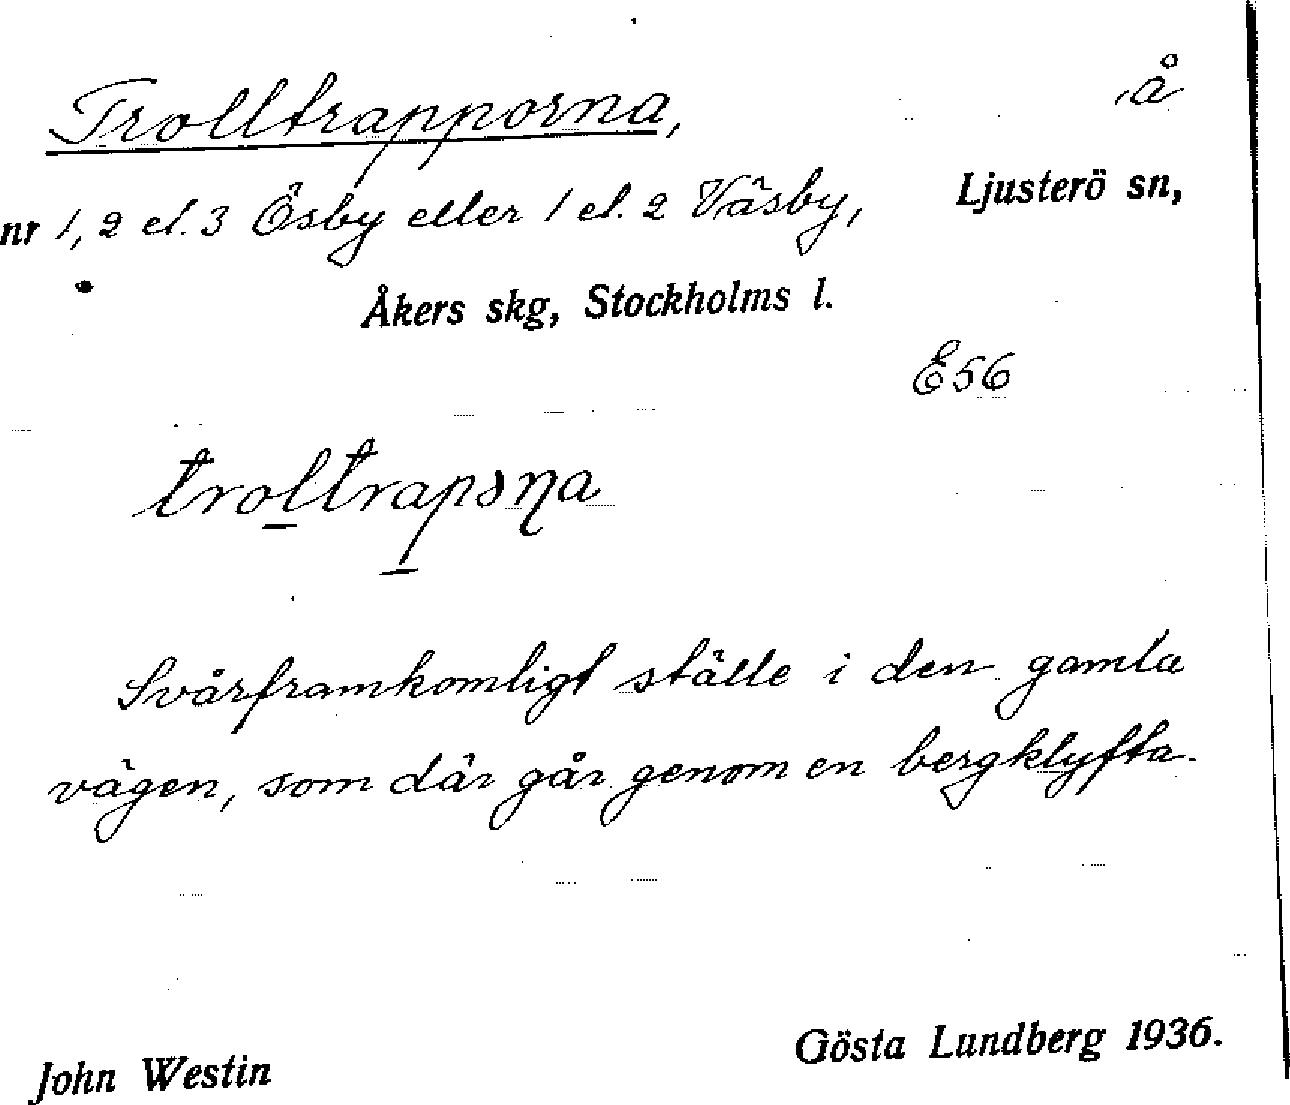 Trolltrapporna, å
nr 1, 2 el. 3 Ösby eller 1 el. 2 Väsby, Ljusterö sn,
Åkers skg, Stockholms l.
E56
troltrapəṇa
Svårframkomligt ställe i den gamla
vägen, som där går genom en bergklyfta.
John Westin Gösta Lundberg 1936.